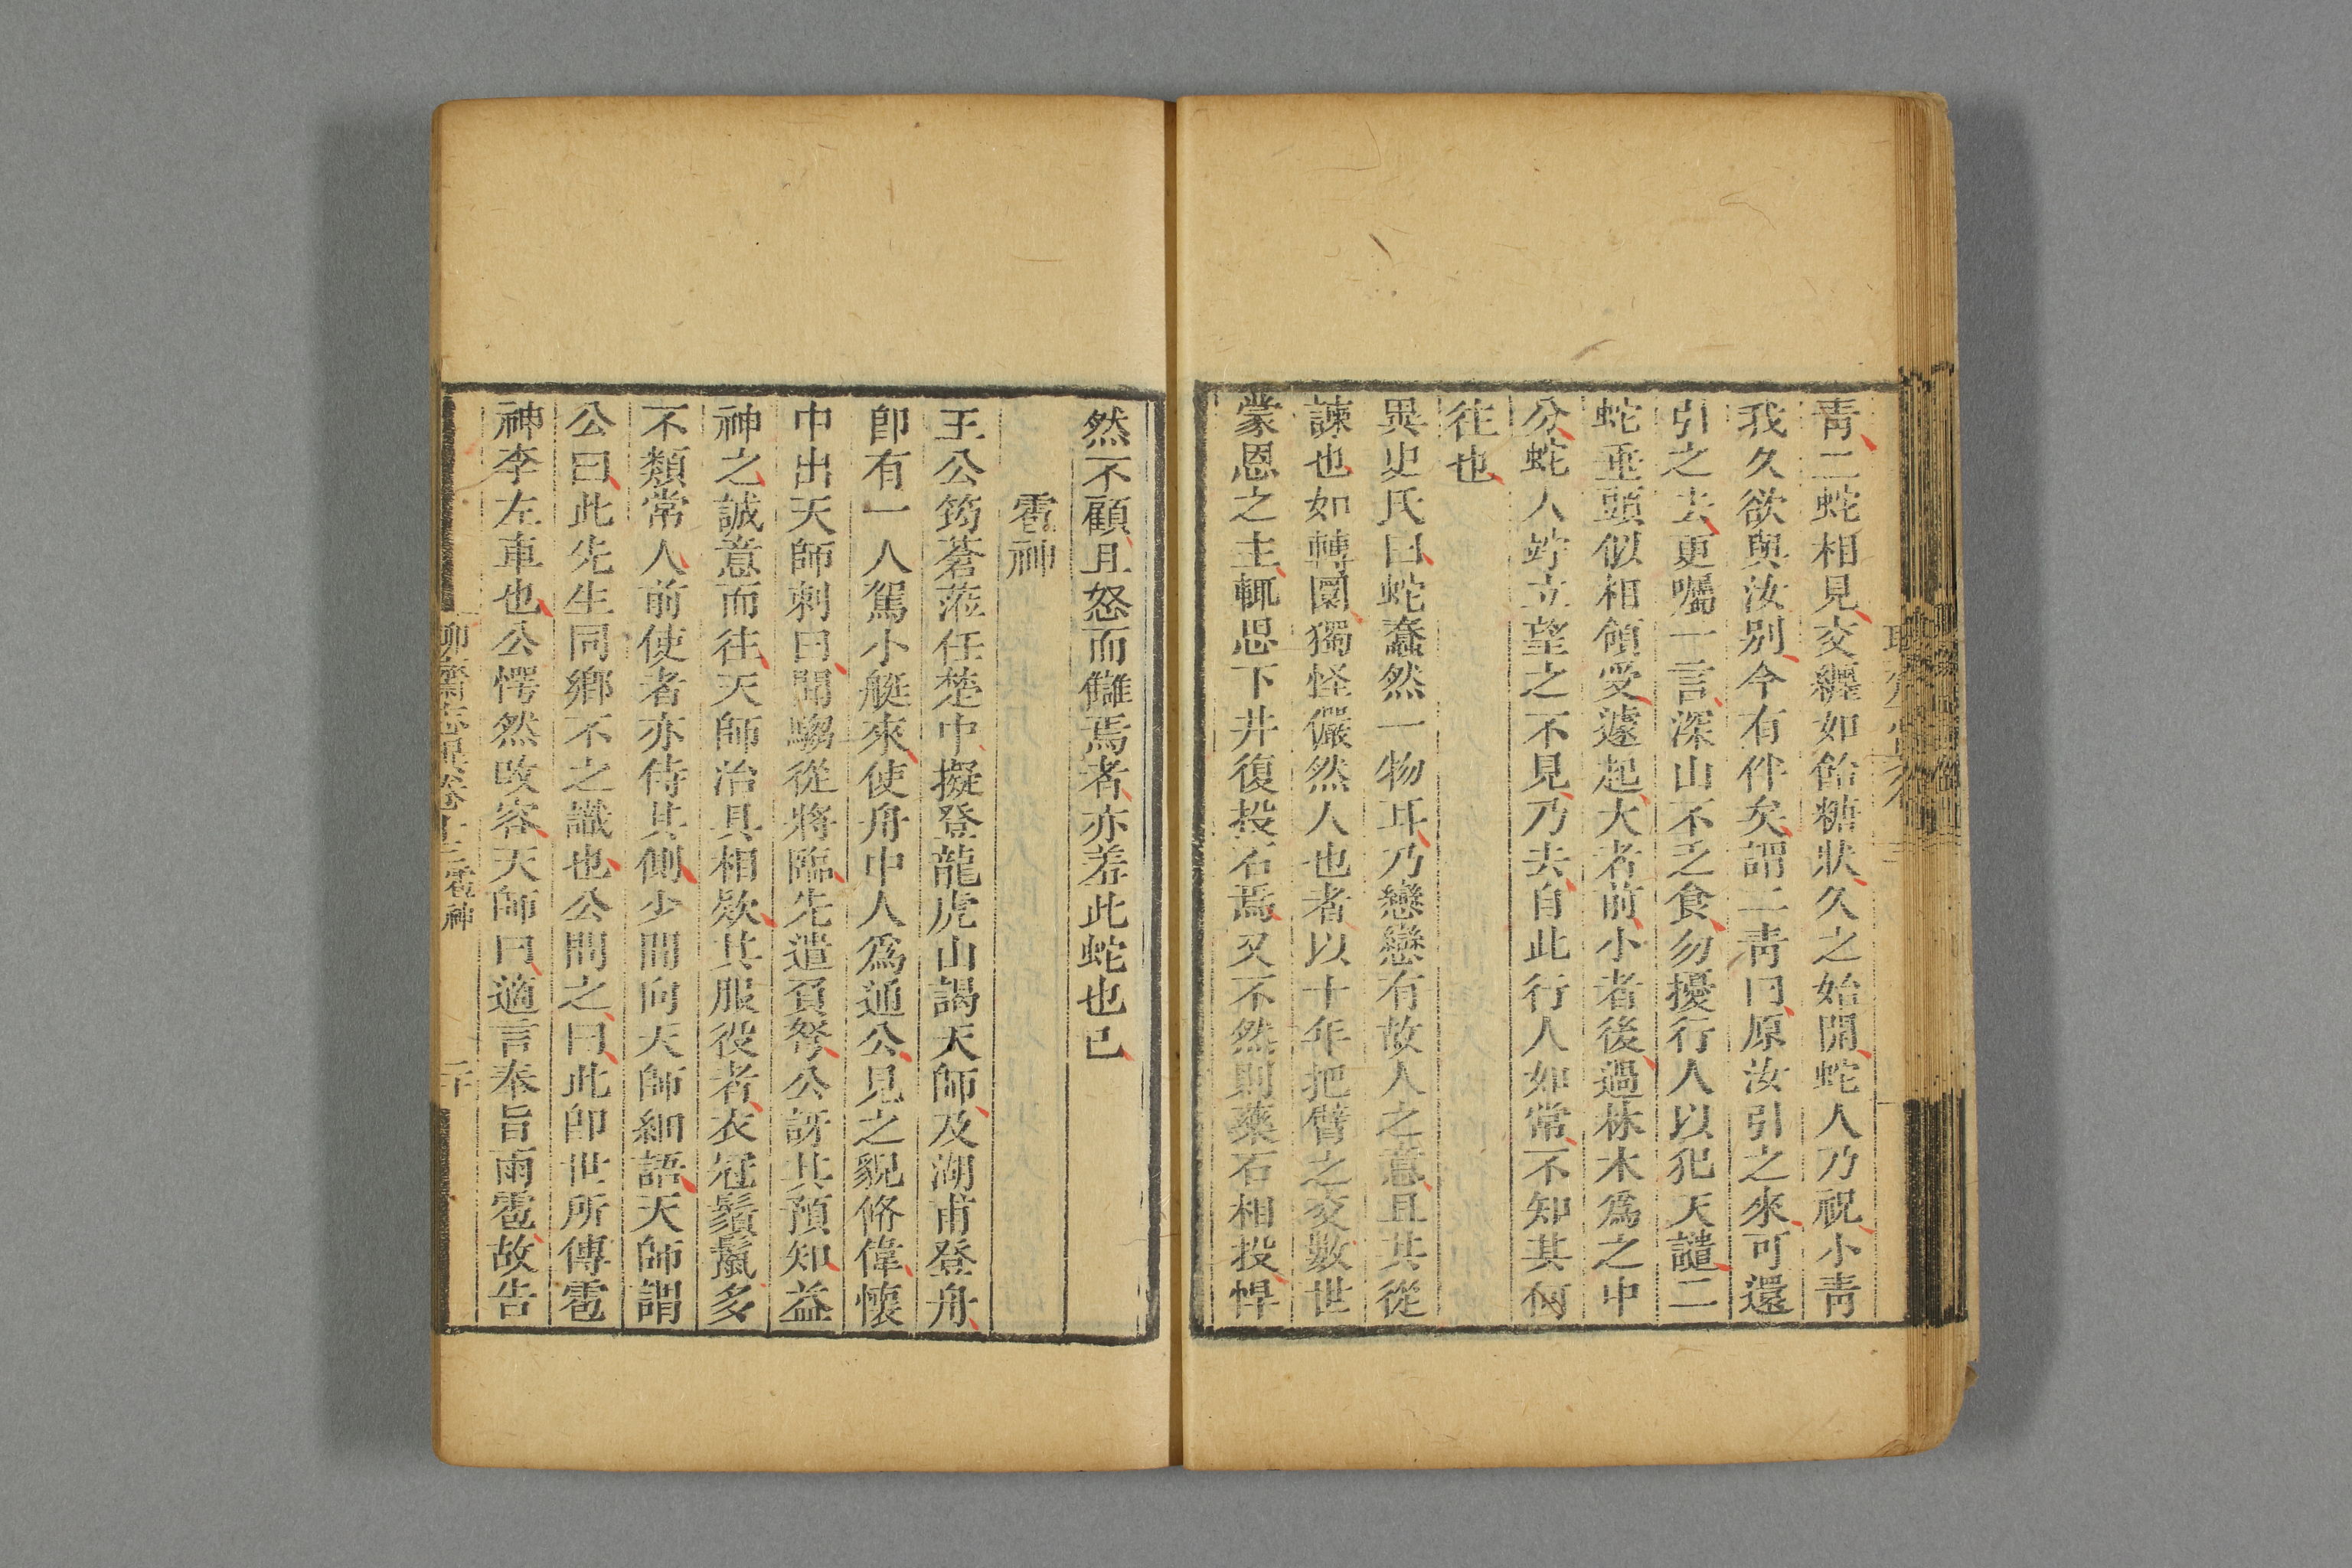 青二蛇相見交纏如飴糖狀久之始開蛇人乃祝小青
我久欲與汝别今有伴矣謂二青曰原汝引之來可還
引之去更囑一言深山不乏食勿擾行人以犯天譴二
蛇垂頭似相領受遽起大者前小者後過林木爲之中
分蛇人竚立望之不見乃去自此行人如常不知其何
往也
異史氏曰蛇蠢然一物耳乃戀戀有故人之意且其從
諫也如轉圜獨怪儼然人也者以十年把臂之交數世
蒙恩之主輒思下井復投石焉又不然則藥石相投悍
然不顧且怒而讎焉者亦羞此蛇也已
雹神
王公筠蒼蒞任楚中擬登龍虎山謁天師及湖甫登舟
卽有一人駕小艇來使舟中人爲通公見之貌修偉懷
中出天師刺曰聞騶從將臨先遣負弩公訝其預知益
神之誠意而往天師治具相款其服役者衣冠鬚鬣多
不類常人前使者亦侍其側少間向天師細語天師謂
公曰此先生同鄉不之識也公問之曰此卽世所傳雹
神李左車也公愕然改容天師曰適言奉旨雨雹故告
聊齋志異卷十二雹神 二十